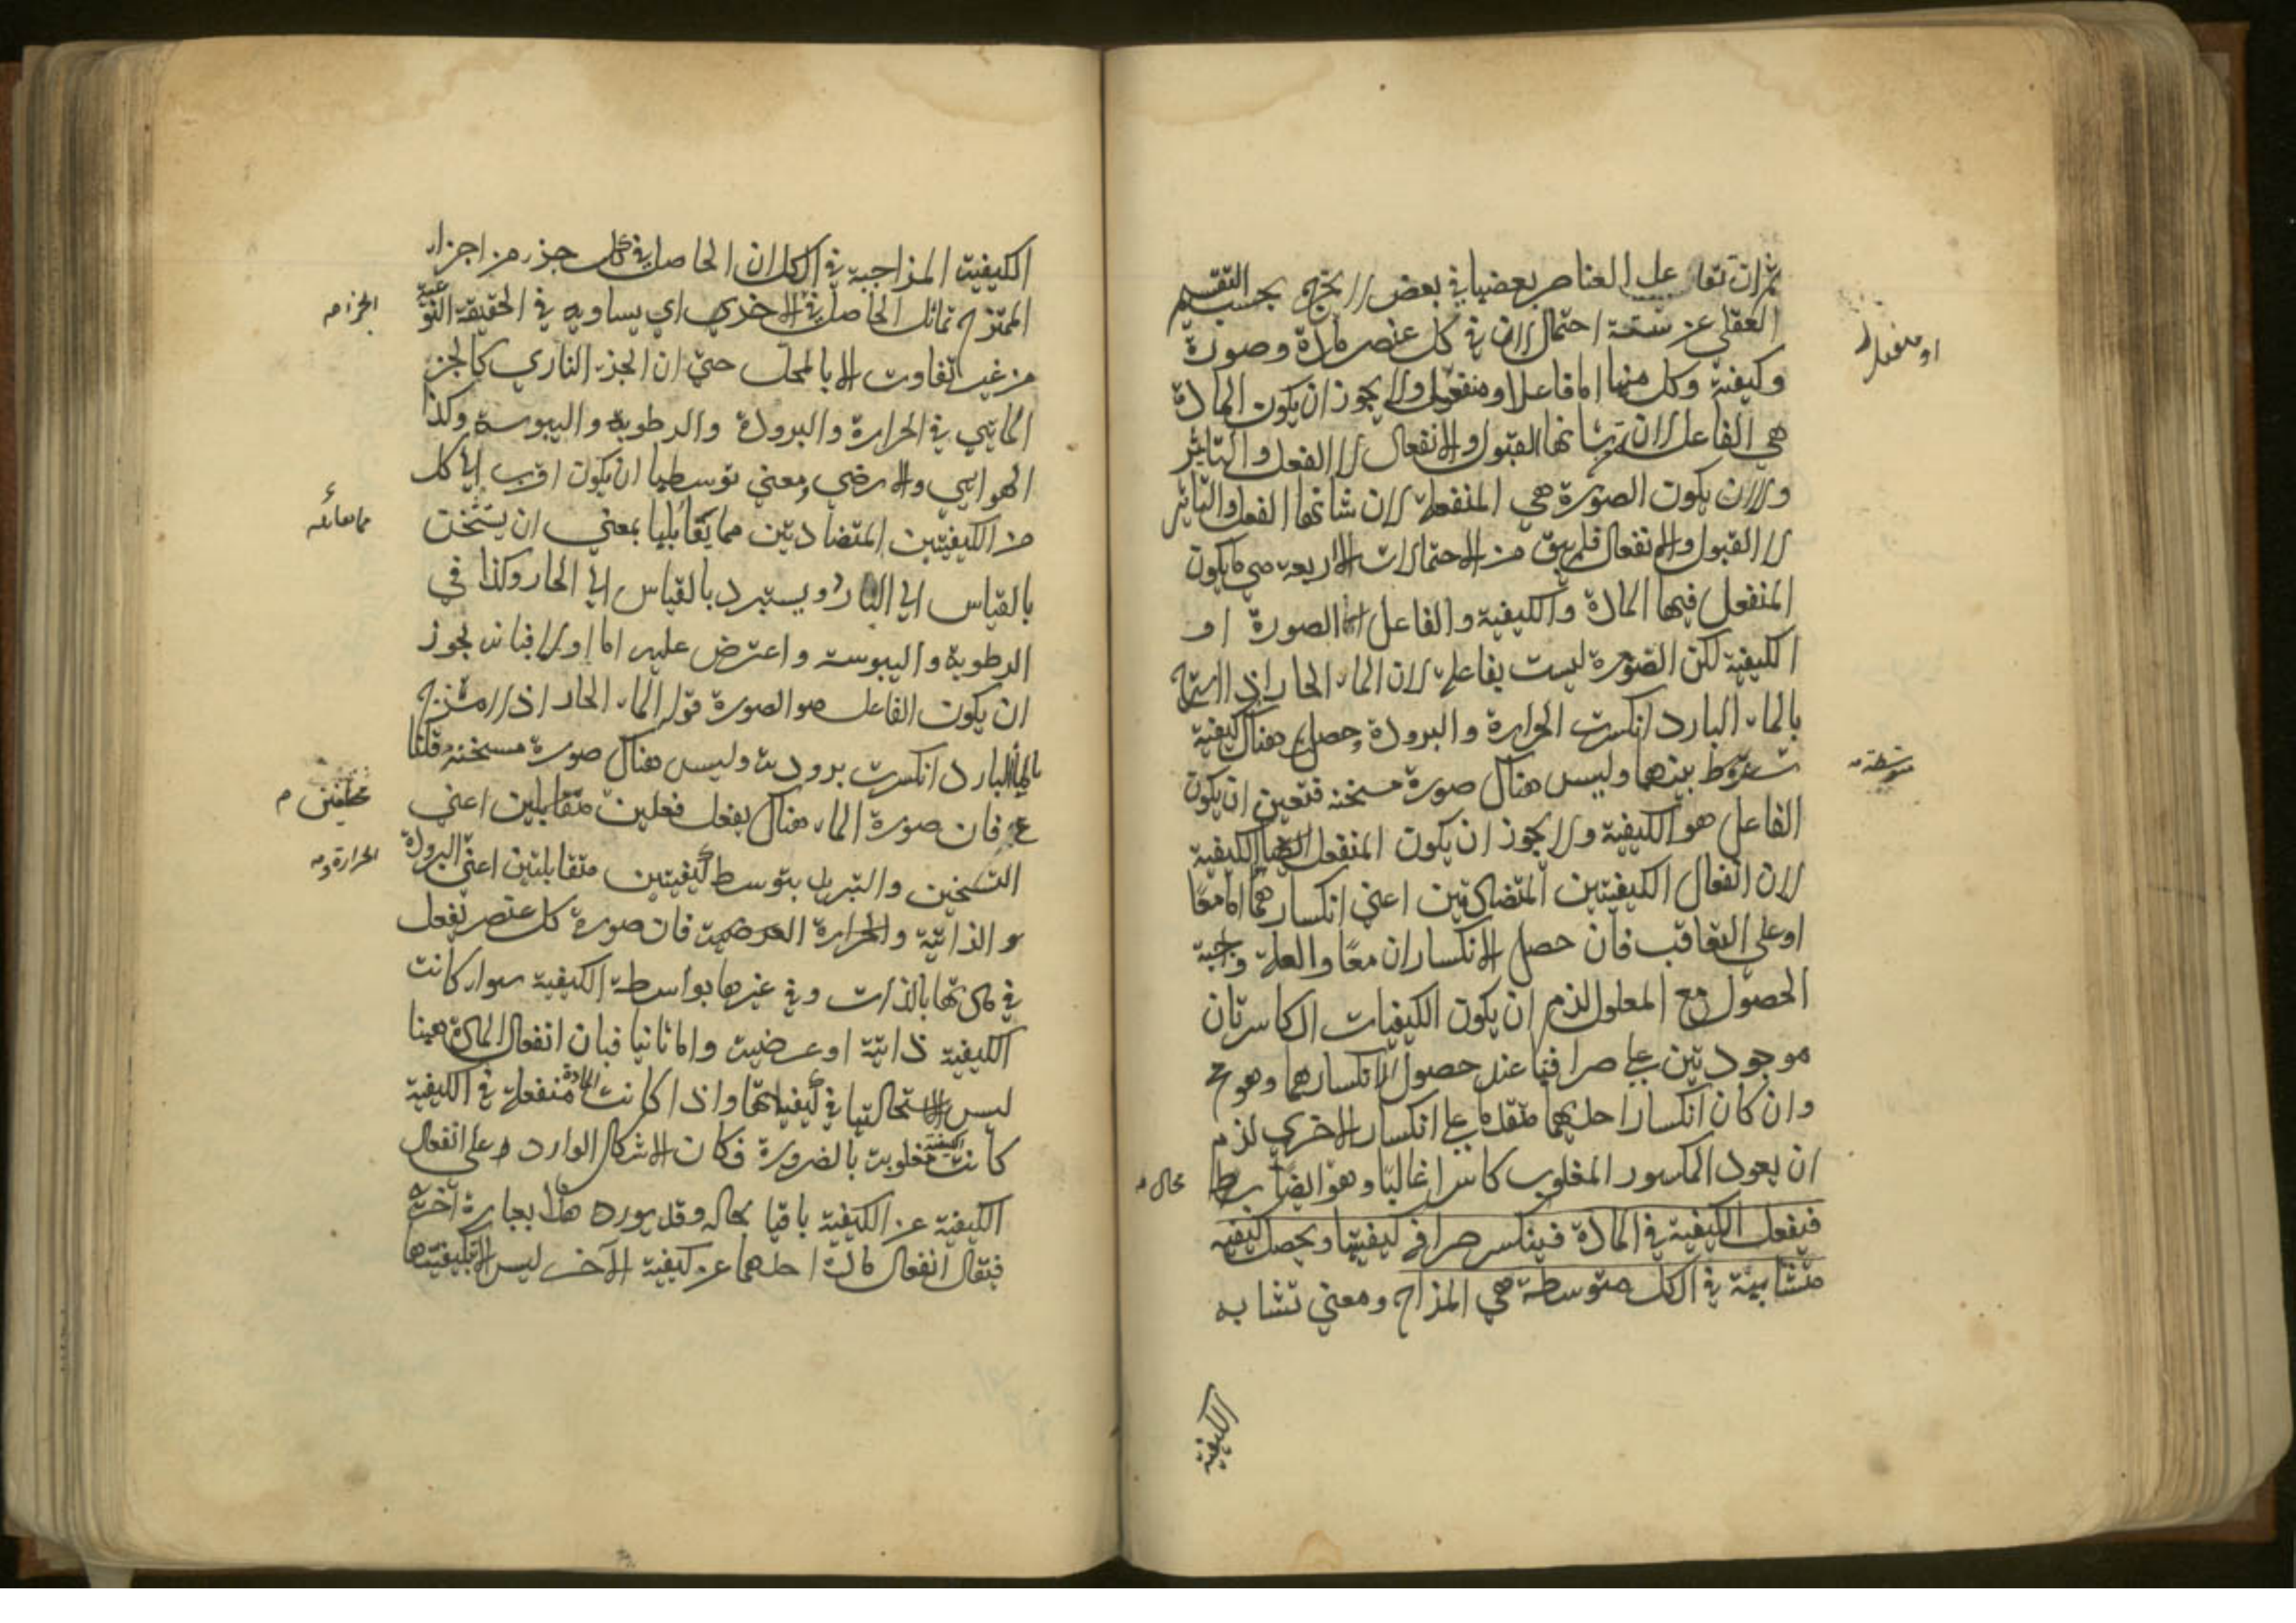 ثم ان تفاعل العناصر بعضها في بعض لا يخرج بحسب التقسيم
العقلي عن ستة احتمال لان في كل عنصر مادة وصورة
وكيفية وكل منها اما فاعل او منفعل ولا يجوز ان يكون المادة
او منفعل
هي الفاعل لان من شانها القبول والانفعال لا الفعل والتاثير
ولا ان يكون الصورة هي المنفعلة لان شانها الفعل والتاثير
لا القبول والانفعال فلم يبق من الاحتمالات الا اربعة هي ما يكون
المنفعل فيها المادة والكيفية والفاعل اما الصورة او
الكيفية لكن الصورة ليست بفاعلة لان الماء الحار اذا امتزج
بالماء البارد انكسرت الحرارة والبرودة وحصل هناك كيفية
متوسطة بينهما وليس هناك صورة مسخنة فتعين ان يكون
متوسطة
الفاعل هو الكيفية ولا يجوز ان يكون المنفعل ايضا الكيفية
لان انفعال الكيفيتين المتضادتين اعني انكسارهما اما معا
او على التعاقب فان حصل الانكساران معا والعلة واجبة
الحصول مع المعلول لزم ان يكون الكيفيات الكاسرتان
موجودتين على صرافتها عند حصول انكسارهما وهو مح
وان كان انكسار احديهما متقدما على انكسار الاخري لزم
ان يعود المكسور المغلوب كاسرا غالبا وهو ايضا
محال
فيفعل الكيفية في المادة فينكسر صرافة كيفيتها ويحصل كيفية
متشابهة في الكل متوسطة هي المزاج ومعني تشابه
الكيفية
الكيفية المزاجية في الكل ان الحاصل في كل جزء من اجزاء
الممتزج تماثل الحاصل في الاخري اي يساويه في الحقيقة النوعية
الجزء
من غير تفاوت الا بالمحل حتي ان الجزء الناري كالجزء
المائي في الحرارة والبرودة والرطوبة واليبوسة وكذا
الهوايي والارضي ومعني توسطها ان يكون اقرب الي كل
من الكيفيتين المتضاديتين مما يقابلها بمعني ان يستسخن
بالقياس الي البارد ويستبرد بالقياس الي الحار وكذا في
الرطوبة واليبوسة واعترض عليه اما اولا فبانه لجواز
ان يكون الفاعل هو الصورة قوله الماء الحار اذا امتزج
بالماء البارد انكسرت برودته وليس هناك صورة مسخنة قلنا
مم فان صورة الماء هناك يفعل فعلين متقابلين اعني
مختلفين
التسخين والتبريد بتوسط كيفيتين متقابلتين اعني البرودة
الحرارة
الذاتية والحرارة العرضية فان صورة كل عنصر تفعل
في مادتها بالذات وفي غيرها بواسطة الكيفية سواء كانت
الكيفية ذاتية او عرضية واما ثانيا فبان انفعال المادة ههنا
ليس الا استحالتها في كيفياتها واذا كانت المادة منفعلة في الكيفية
كانت الكيفية مغلوبة بالضرورة فكان الاشكال الوارد على انفعال
الكيفية عن الكيفية باقيا بحاله وقد يورد هذا بعبارة اخري
فيقال انفعال مادة احدهما عن كيفية الاخر ليس الا بكيفيتها